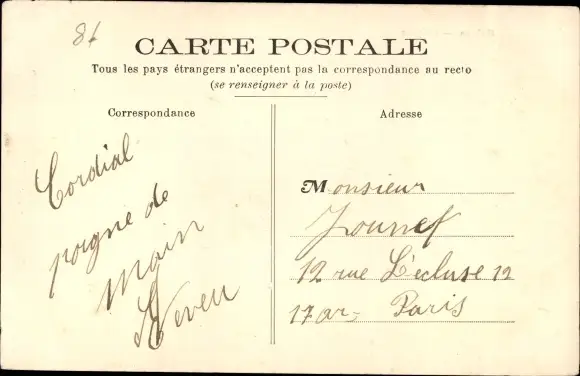 86
CARTE POSTALE
Tous les pays étrangers n'acceptent pas la correspondance au recto
(se renseigner à la poste)
Correspondance
Cordial
poigne de
Main
Adresse
Monsieur
12 rue L'écluse 12
17 ar- Paris